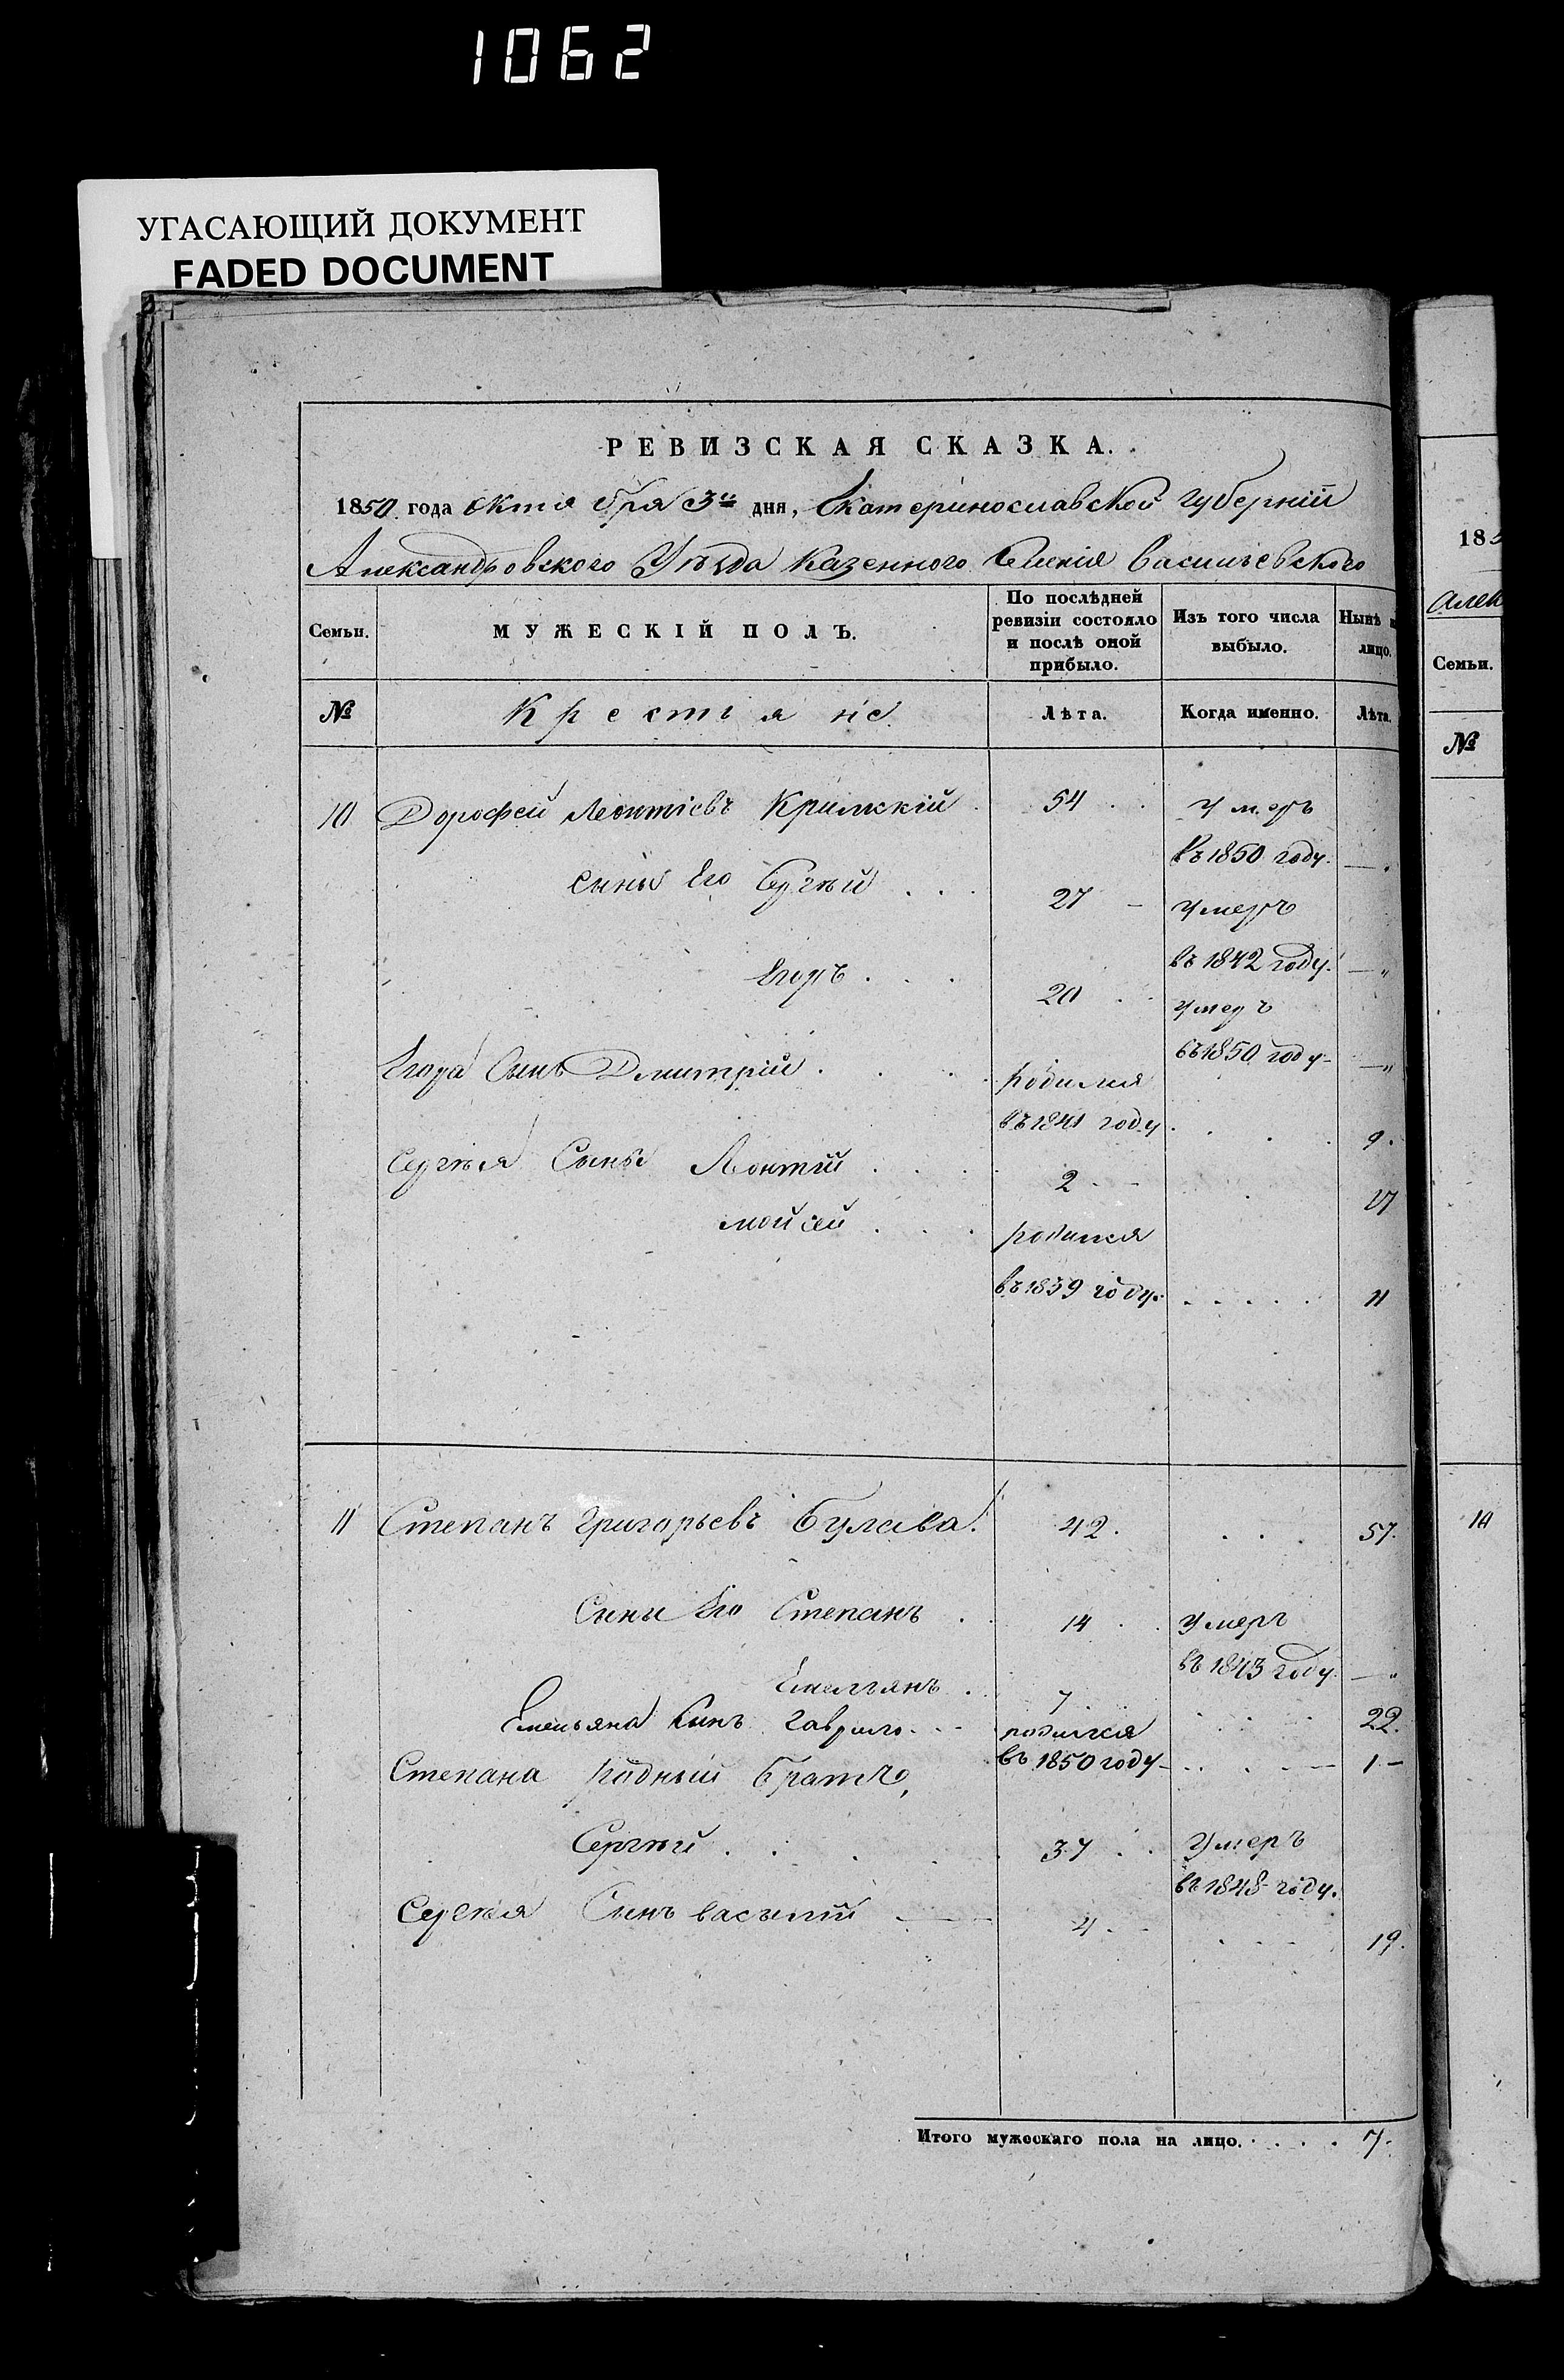 1062
УГАСАЮЩИЙ ДОКУМЕНТ
FADED DOCUMENT
РЕВИЗСКАЯ СКАЗКА.
1850 года октября 3го дня, Екатеринославской Губернии
Александровского Уѣзда Казенного Селения Васильевского
Семьи. МУЖЕСКІЙ ПОЛЪ. По послѣдней ревизіи состояло и послѣ оной прибыло. Изъ того числа выбыло. Нынѣ лицо.
№ Крестьяне Лѣта. Когда именно. Лѣта.
10 Дорофей Леонтіевъ Кримскій 54 Умеръ
въ 1850 году. —"
Сыны Его Сергѣй 27 Умеръ
въ 1842 году. —"
Егоръ 20 Умеръ
въ 1850 году —"
Егора Сынъ Дмитрій родился
въ 1841 году 9.
Сергѣя Сыны Леонтій 2 17
Мойсей родился
въ 1839 году 11
11 Степанъ Григорьевъ Булава 42. 57.
Сыны Его Степанъ 14 Умеръ
въ 1843 году. —"
Емельянъ 7 22.
Емельяна Сынъ Гаврило родился
въ 1850 году 1
Степана родный братъ,
Сергѣй 37 Умеръ
въ 1848 году.
Сергѣя Сынъ Василій 4 19.
Итого мужескаго пола на лицо. 7.
185
Алек
Семьи.
№
10